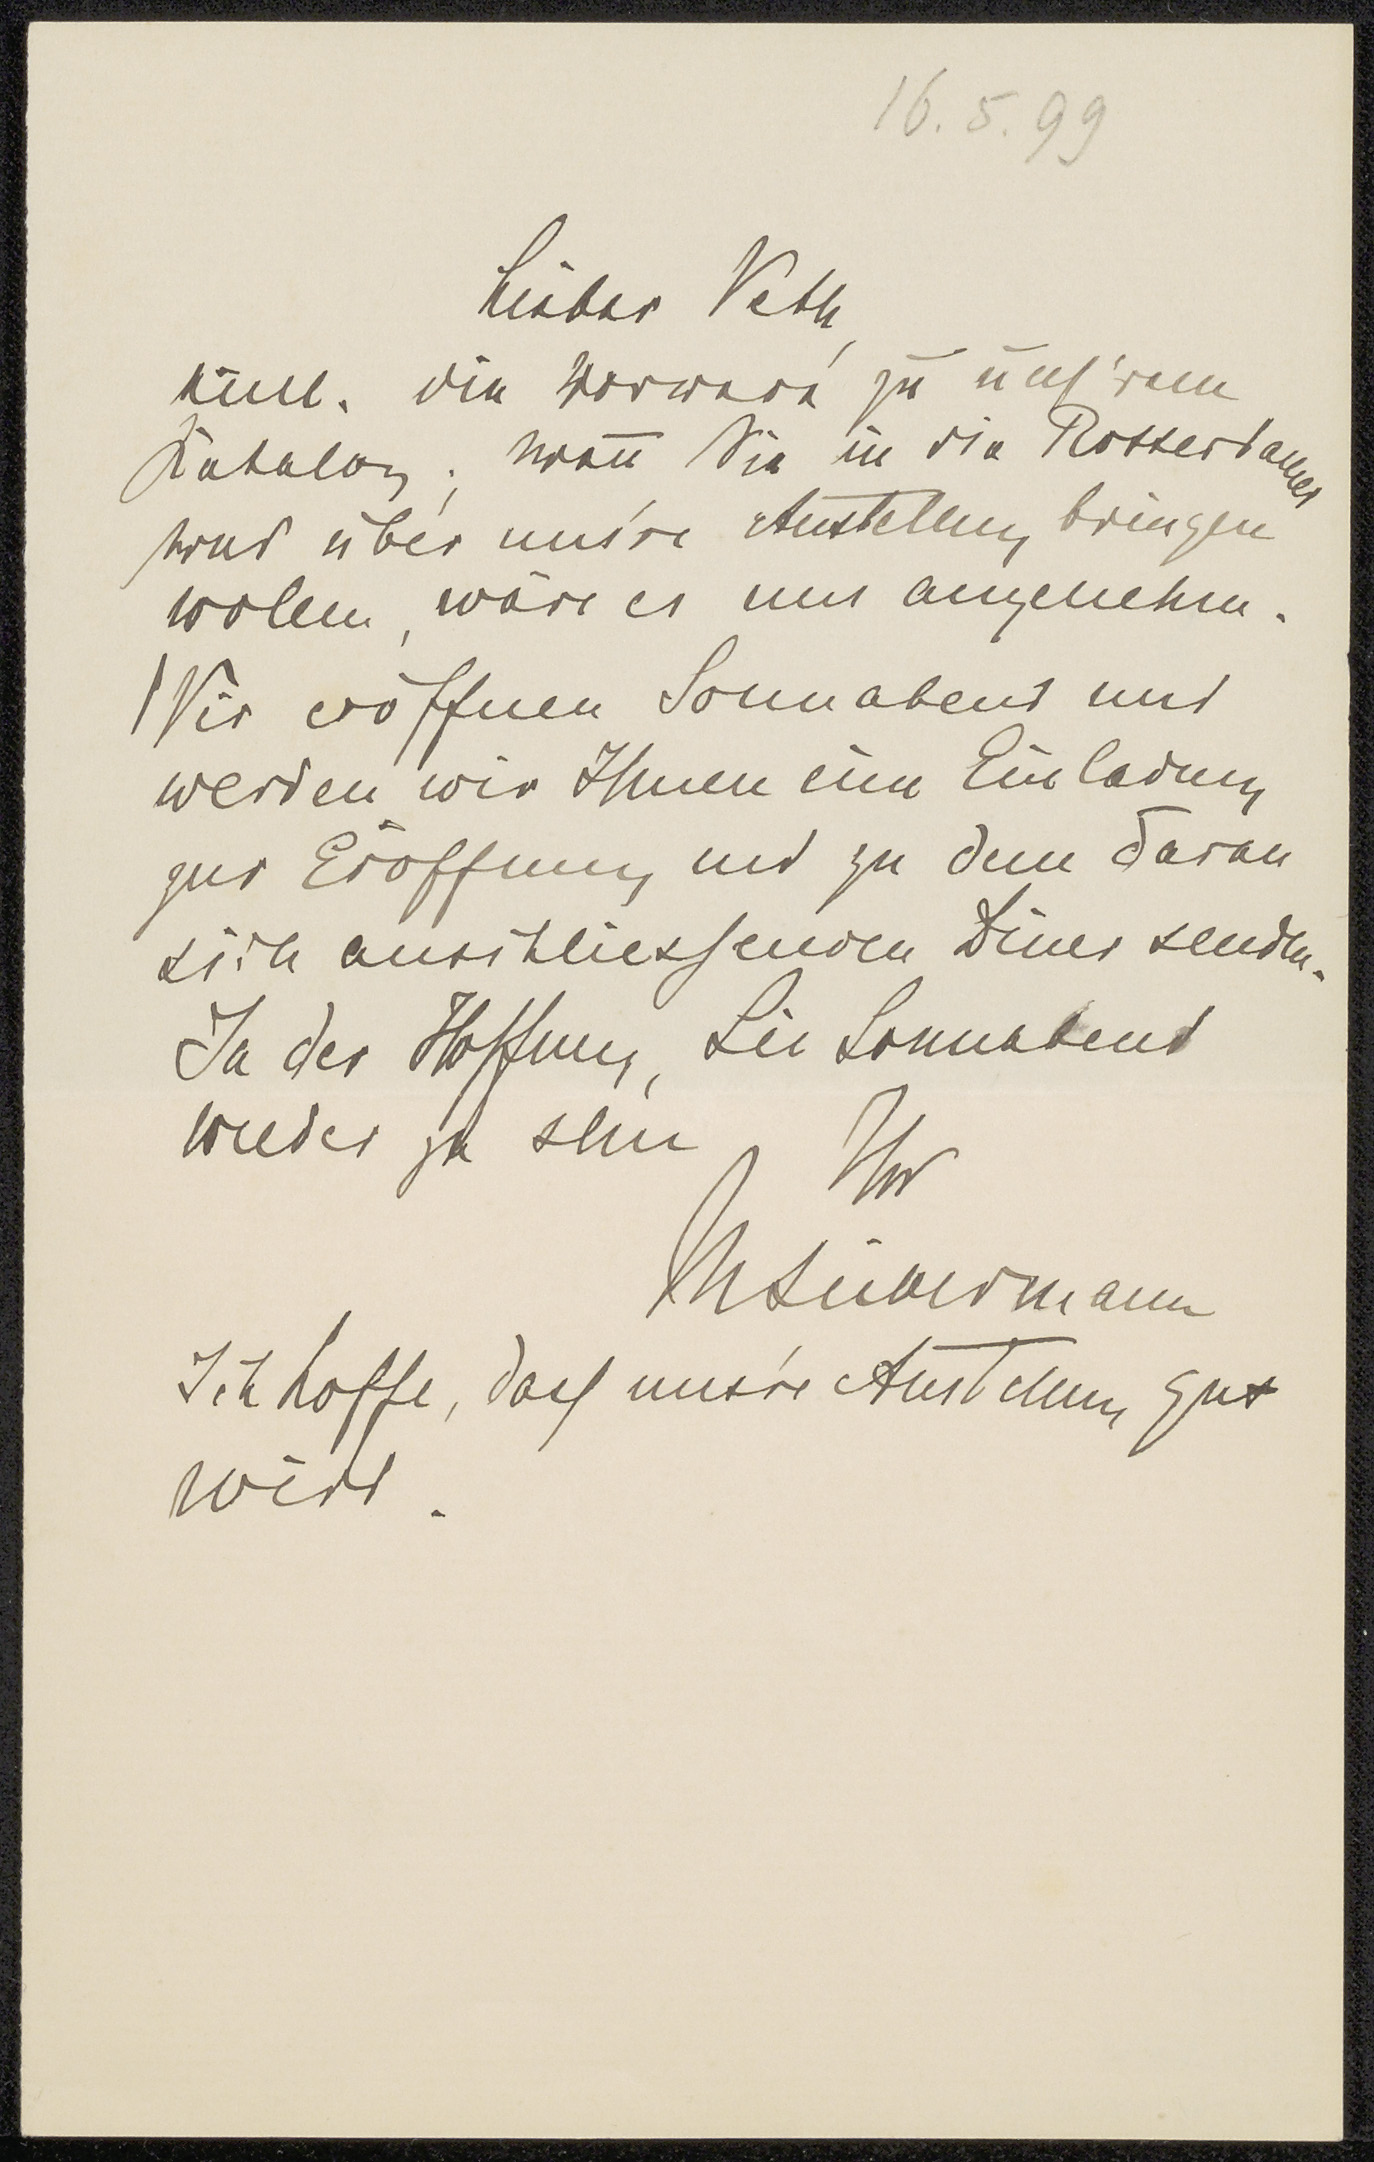 16.5.99
Lieber Veth,
einl. die Vorrede zu uns'rem
Katalog; wenn Sie in die Rotterdamer
was über uns're Austellung bringen
wolen, wäre es uns angenehm.
Wir eröffnen Sonnabend und
werden wir Ihnen eine Einladung
zur Eröffnung und zu dem daran
sich anschliessenden Diner senden.
In der Hoffnung, Sie Sonnabend
wieder zu sehn
Ihr
MLiebermann
Ich hoffe, dass uns're Austellung gut
wird.